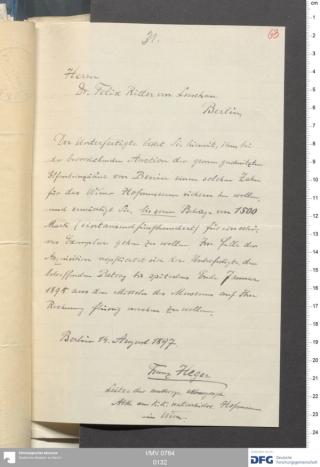 31.
63
Herrn
Dr. Felix Ritter von Luschan
Berlin
Der Unterfertigte bittet Sie hiemit, ihm bei
der bevorstehenden Auction der grossen geschnitzten
Elfenbeinzähne von Benin einen solchen Zahn
für das Wiener Hofmuseum sichern zu wollen,
und ermächtigt Sie, bis zum Betrage von 1500
Mark (eintausend fünfhundert) für ein
Exemplar gehen zu wollen. Im Falle der
Acquisition verpflichtet sich der Unterfertigte den
betreffenden Betrag bis spätestens Ende Januar
1898 aus den Mitteln des Museums auf Ihre
Rechnung flüssig machen zu wollen.
Berlin 14. August 1897
Franz Heger
Leiter der anthrop. ethnograph.
Abth. am k. k. naturhistor. Hofmuseum
in Wien.
I/MV 0764
0132
DFG
Deutsche
Forschungsgemeinschaft